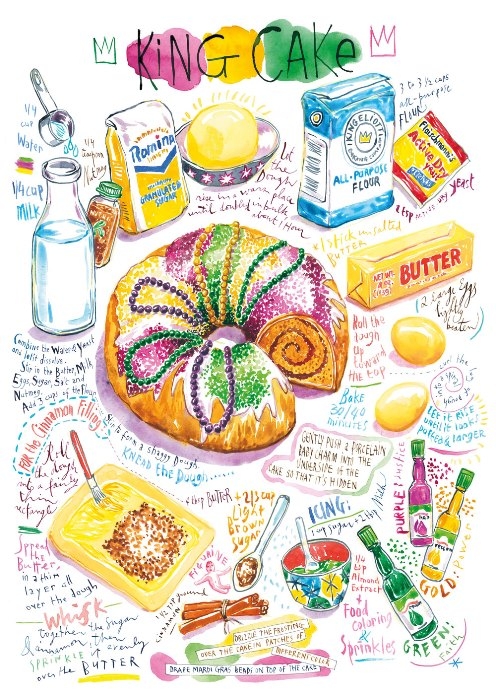 KING CAKE
1/4
cup
Water
1/4 cup
Milk
1/4
teaspoon
Nutmeg
Domino
GRANULATED
SUGAR
Let
the
Dough
rise in a warm place
until doubled in bulk
about 1 Hour
KING ELLIOTT
ALL-PURPOSE
FLOUR
3 to 3 1/2 cups
all-purpose
FLUR
Fleischmann's
Active Dry
Yeast
2 tsp active dry yeast
1 stick unsalted
BUTTER
NET WT.
BUTTER
(2 Large Eggs
lightly
beaten)
Roll the
dough
up
toward
the top
Bake
30/40
minutes
let it Rise
until it looks
puffed & larger
Combine the Water & Yeast
and let it dissolve.
Stir in the Butter, Milk,
Eggs, Sugar, Salt and
Nutmeg.
Add 3 cups of the Flour
For the Cinnamon Filling:
Starts form a shaggy Dough.
KNEAD the DOUGH......
Roll
the dough
into a fairly
thin
rectangle
GENTLY PUSH A PORCELAIN
BABY CHARM INTO THE
UNDERSIDE OF THE
CAKE SO THAT IT'S HIDDEN.
PURPLE justice
GOLD Power
GREEN!
Faith
BUTTER
+ 2/3 cup
Light
Brown
Sugar
ICING:
1 cup Sugar + 2 tbsp Milk
1/4
tsp
Almond
Extract
+
Food
Coloring
&
Sprinkles
Spread
the
Butter
in a thin
layer all
over the dough
FIGURINE
Whisk
together the Sugar
& cinnamon then
SPRINKLE it evenly
over the BUTTER
DRIZZLE THE FROSTING
OVER THE CAKE IN PATCHES OF
DIFFERENT COLOR
DRAPE MARDI GRAS BEADS ON TOP OF THE CAKE